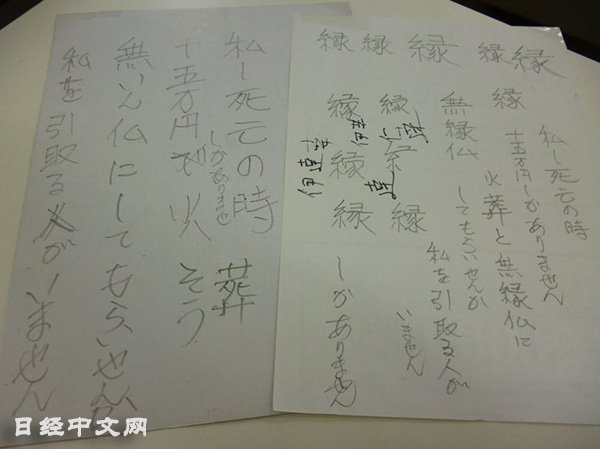 私し死亡の時 葬
しかありませ
十五万円で火そう
無いえん仏にしてもらいせんか
私を引取る人がいません
縁 縁 縁 縁 縁
私し死亡の時
十五万円しかありません
縁 火葬と無縁仏に
無縁仏 してもらいせんか
私を引取る人が
いません
縁 縁
縁 縁 縁 しかありません
日经中文网